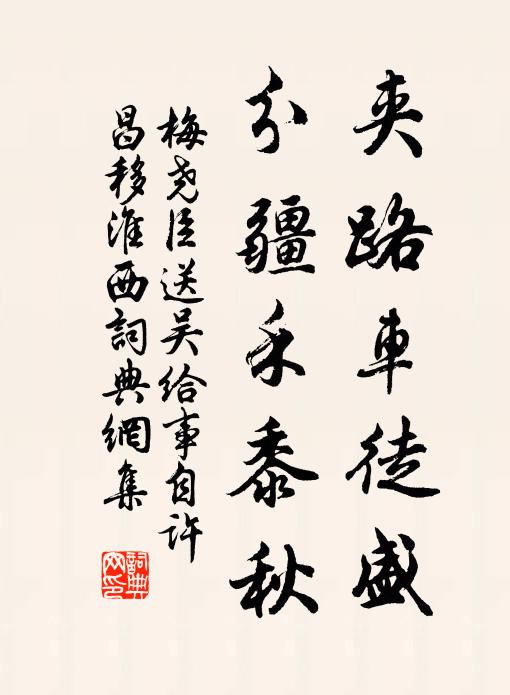 夹路車徒盛
分疆禾黍秋
梅尧臣送吴给事自许
昌移淮西詞典網集
詞典網印